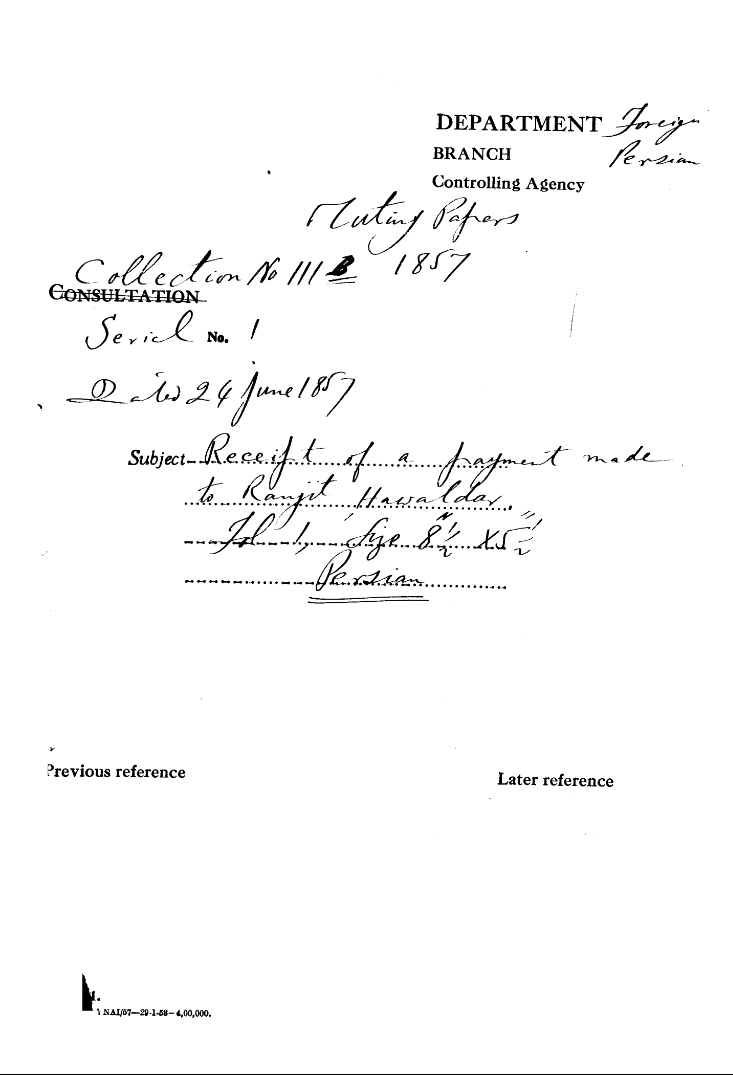 DEPARTMENT Foreign
BRANCH Persian
Controlling Agency
Mutiny Papers
Collection No 111 B 1857
CONSULTATION
Serial No. 1
Dated 24 June 1857
Subject Receipt of a payment made
to Ranjit Hawaldar.
Fol 1, Size 8½" X5½"
Persian
Previous reference
Later reference
NAI/57—29-1-58—4,00,000.